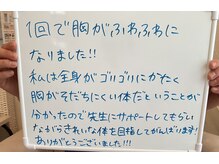 1回で胸がふわふわに
なりました!!
私は全身がゴリゴリにかたく
胸がそだちにくい体だということが
分かったので先生にサポートしてもらい
ながらきれいな体を目指してがんばります!
ありがとうございました!!!